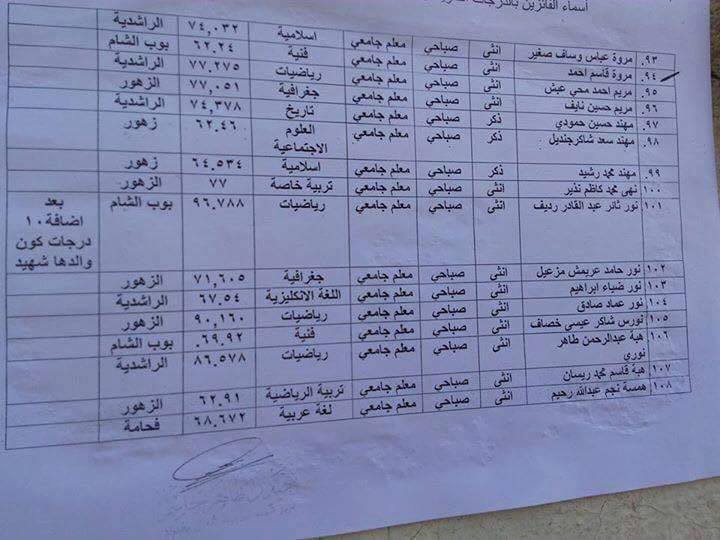 اسماء الفائزين بالدرجات
٩٣. مروة عباس وساف صغير انثى صباحي معلم جامعي اسلامية ٧٤,٠٣٢ الراشدية
٩٤. مروة قاسم احمد انثى صباحي معلم جامعي فنية ٦٢.٢٤ بوب الشام
٩٥. مريم احمد محي عبش انثى صباحي معلم جامعي رياضيات ٧٧.٢٧٥ الراشدية
٩٦. مريم حسين نايف انثى صباحي معلم جامعي جغرافية ٧٧,٠٥١ الزهور
٩٧. مهند حسين حمودي ذكر صباحي معلم جامعي تاريخ ٧٤,٣٧٨ الراشدية
٩٨. مهند سعد شاكرجنديل ذكر صباحي معلم جامعي العلوم ٦٢.٤٦ زهور
الاجتماعية
٩٩. مهند محمد رشيد ذكر صباحي معلم جامعي اسلامية ٦٤.٥٣٤ زهور
١٠٠. نهى محمد كاظم نذير انثى صباحي معلم جامعي تربية خاصة ٧٧ الزهور
١٠١. نور ثائر عبد القادر رديف انثى صباحي معلم جامعي رياضيات ٩٦.٧٨٨ بوب الشام بعد
اضافة ١٠
درجات كون
والدها شهيد
١٠٢. نور حامد عريمش مزعيل انثى صباحي معلم جامعي جغرافية ٧١,٦٠٥ الزهور
١٠٣. نور ضياء ابراهيم انثى صباحي معلم جامعي اللغة الانكليزية ٦٧.٥٤ الراشدية
١٠٤. نور عماد صادق انثى صباحي معلم جامعي رياضيات ٩٠,١٦٠ الزهور
١٠٥. نورس شاكر عيسى خصاف انثى صباحي معلم جامعي فنية ٦٩.٩٢. بوب الشام
١٠٦. هبة عبدالرحمن طاهر انثى صباحي معلم جامعي رياضيات ٨٦.٥٧٨ الراشدية
نوري
١٠٧. هبة قاسم محمد ريسان انثى صباحي معلم جامعي تربية الرياضية ٦٢.٩١ الزهور
١٠٨. همسة نجم عبدالله رحيم انثى صباحي معلم جامعي لغة عربية ٦٨.٦٧٢ فحامة